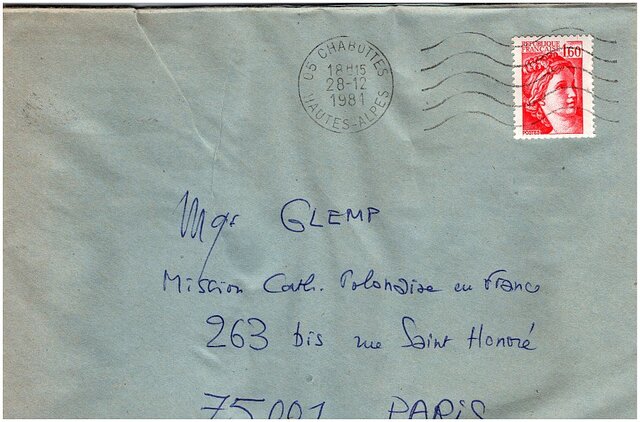 05 CHABOTTES
18H15
28-12
1981
HAUTES-ALPES
REPUBLIQUE
FRANÇAISE
1,60
POSTES
Mgr GLEMP
Mission Cath. Polonaise en France
263 bis rue Saint Honoré
75001 PARIS